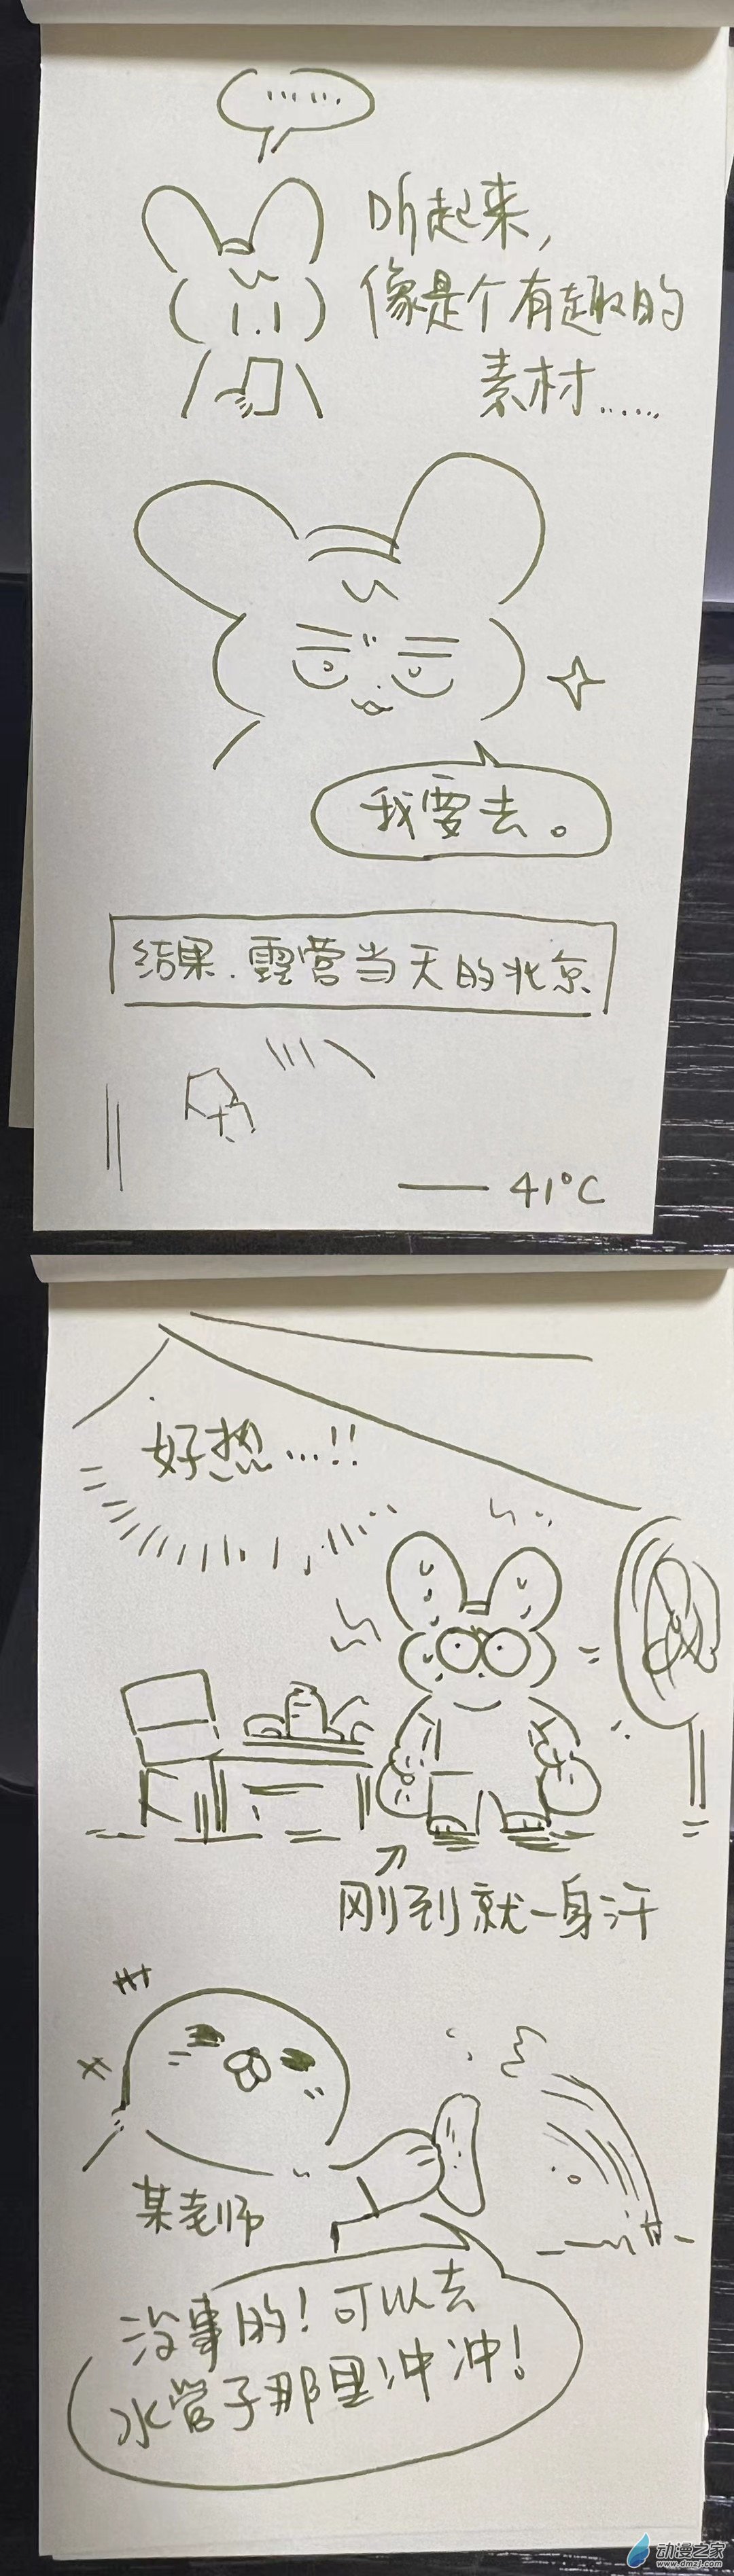 ......
听起来,
像是个有趣的
素材......
我要去。
结果.露营当天的北京
41°C
好热...!!
刚到就一身汗
某老师
没事的!可以去
水管子那里冲冲!
动漫之家
www.dmzj.com